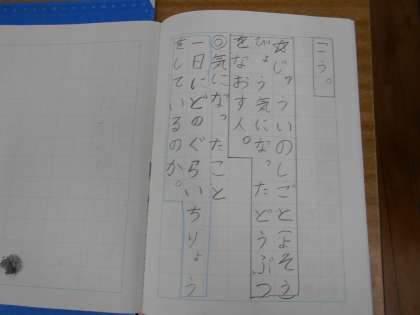 こう。
☆じゅういのしごと(よそう)
びょう気になったどうぶつ
をなおす人。
◎気になったこと
一日にどのぐらいちりょう
をしているのか。